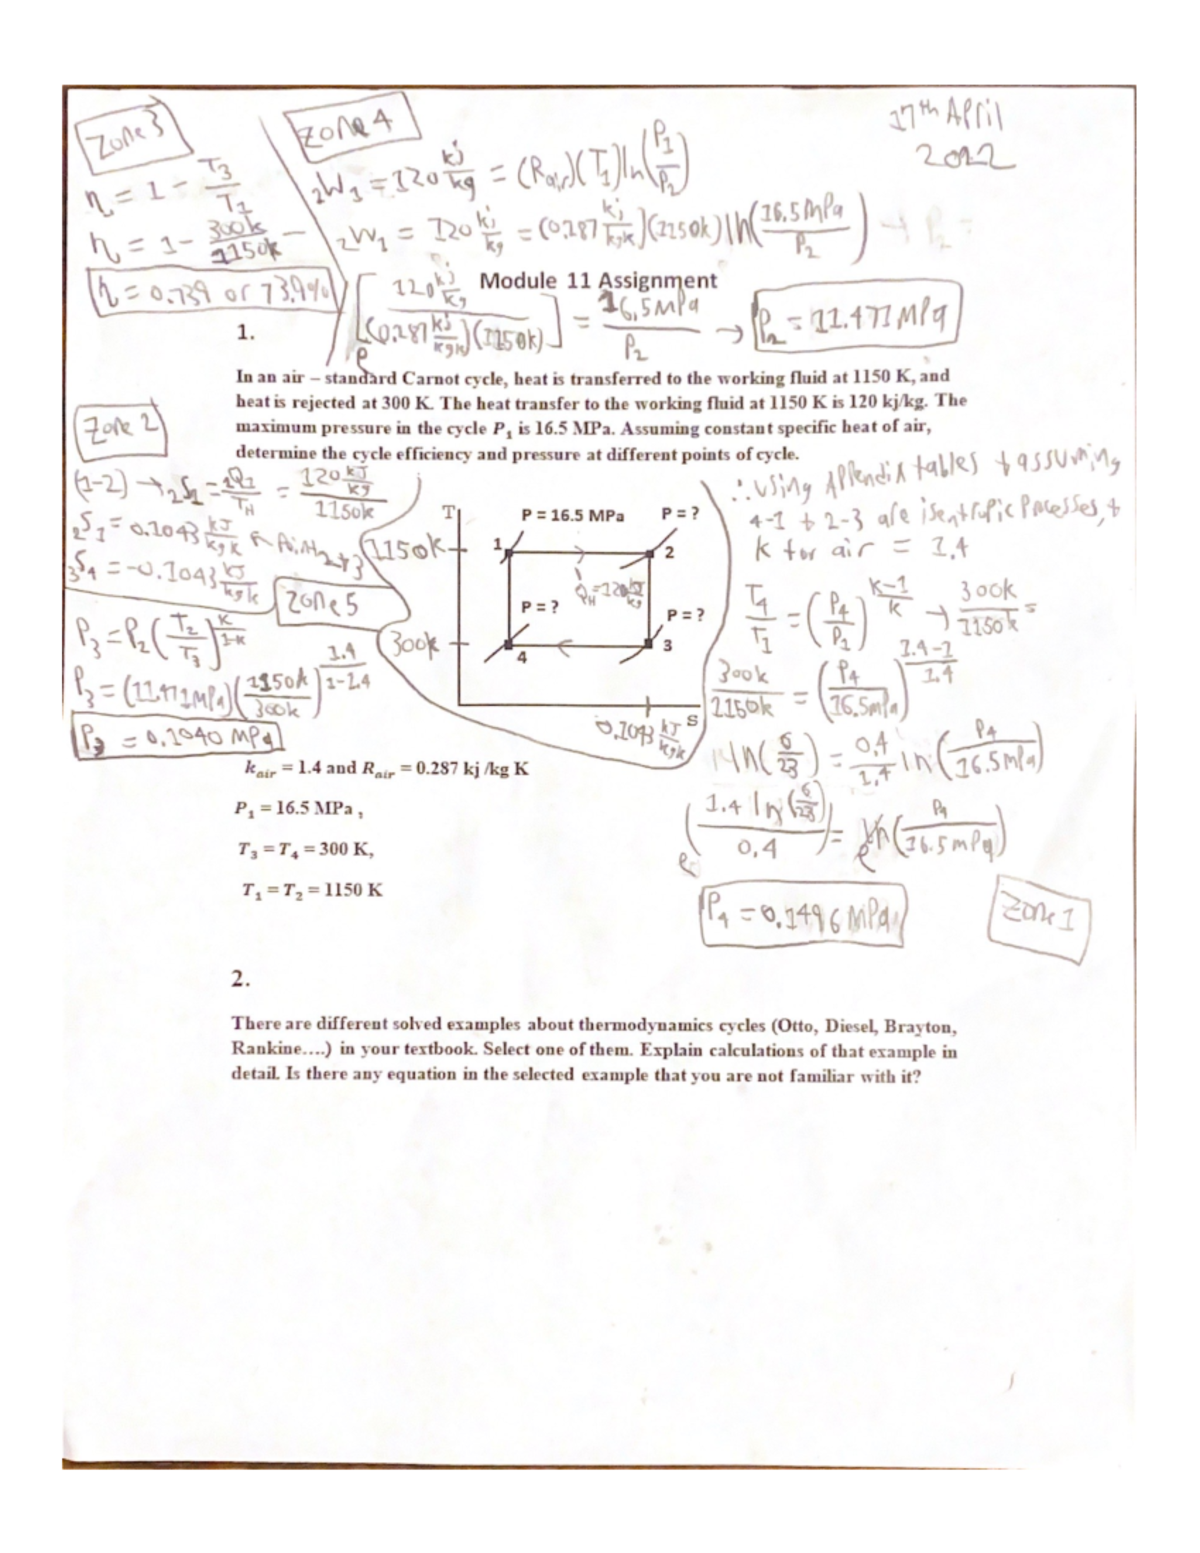 Zone 3
η = 1 - T3/T1
η = 1 - 300k/1150k
η = 0.739 or 73.9%
Zone 4
2W1 = 120 kj/kg = (Rair)(T1)ln(P1/P2)
2W1 = 120 kj/kg = (0.287 kj/kgk)(1150k)ln(16.5MPa/P2) → P2 =
17th April
2022
Module 11 Assignment
e[120 kj/kg / (0.287 kj/kgk)(1150k)] = 16.5MPa/P2 → P2 = 11.471MPa
1.
In an air – standard Carnot cycle, heat is transferred to the working fluid at 1150 K, and
heat is rejected at 300 K. The heat transfer to the working fluid at 1150 K is 120 kj/kg. The
maximum pressure in the cycle P1 is 16.5 MPa. Assuming constant specific heat of air,
determine the cycle efficiency and pressure at different points of cycle.
Zone 2
(1-2) → 2S1 = 2Q1/TH = 120 kJ/kg / 1150k
2S1 = 0.1043 kJ/kgk ← Point 2+3
3S4 = -0.1043 kJ/kgk
Zone 5
P3 = P2(T2/T3)^k/1-k
P3 = (11.471MPa)(1150k/300k)^1.4/1-1.4
P3 = 0.1040 MPa
T
P = 16.5 MPa
P = ?
1150k
1
2
QH=120 kJ/kg
P = ?
P = ?
300k
4
3
S
0.1043 kJ/kgk
∴ Using Appendix tables + assuming
4-1 + 2-3 are isentropic Processes, +
k for air = 1.4
T4/T1 = (P4/P1)^k-1/k → 300k/1150k =
300k/1150k = (P4/16.5MPa)^1.4-1/1.4
ln(6/23) = 0.4/1.4 ln(P4/16.5MPa)
e(1.4 ln(6/23)/0.4) = e ln(P4/16.5MPa)
P4 = 0.1496 MPa
Zone 1
kair = 1.4 and Rair = 0.287 kj /kg K
P1 = 16.5 MPa ,
T3 = T4 = 300 K,
T1 = T2 = 1150 K
2.
There are different solved examples about thermodynamics cycles (Otto, Diesel, Brayton,
Rankine….) in your textbook. Select one of them. Explain calculations of that example in
detail. Is there any equation in the selected example that you are not familiar with it?